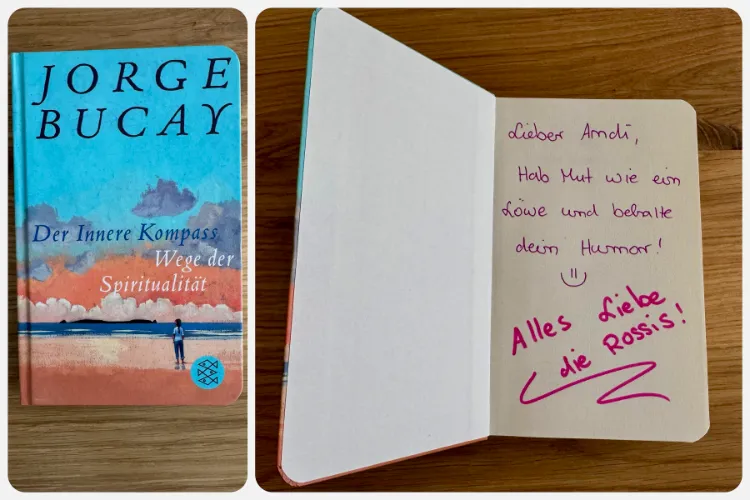 JORGE
BUCAY
Der Innere Kompass
Wege der
Spiritualität
Lieber Andi,
Hab Mut wie ein
Löwe und behalte
dein Humor!
Alles Liebe
die Rossis!